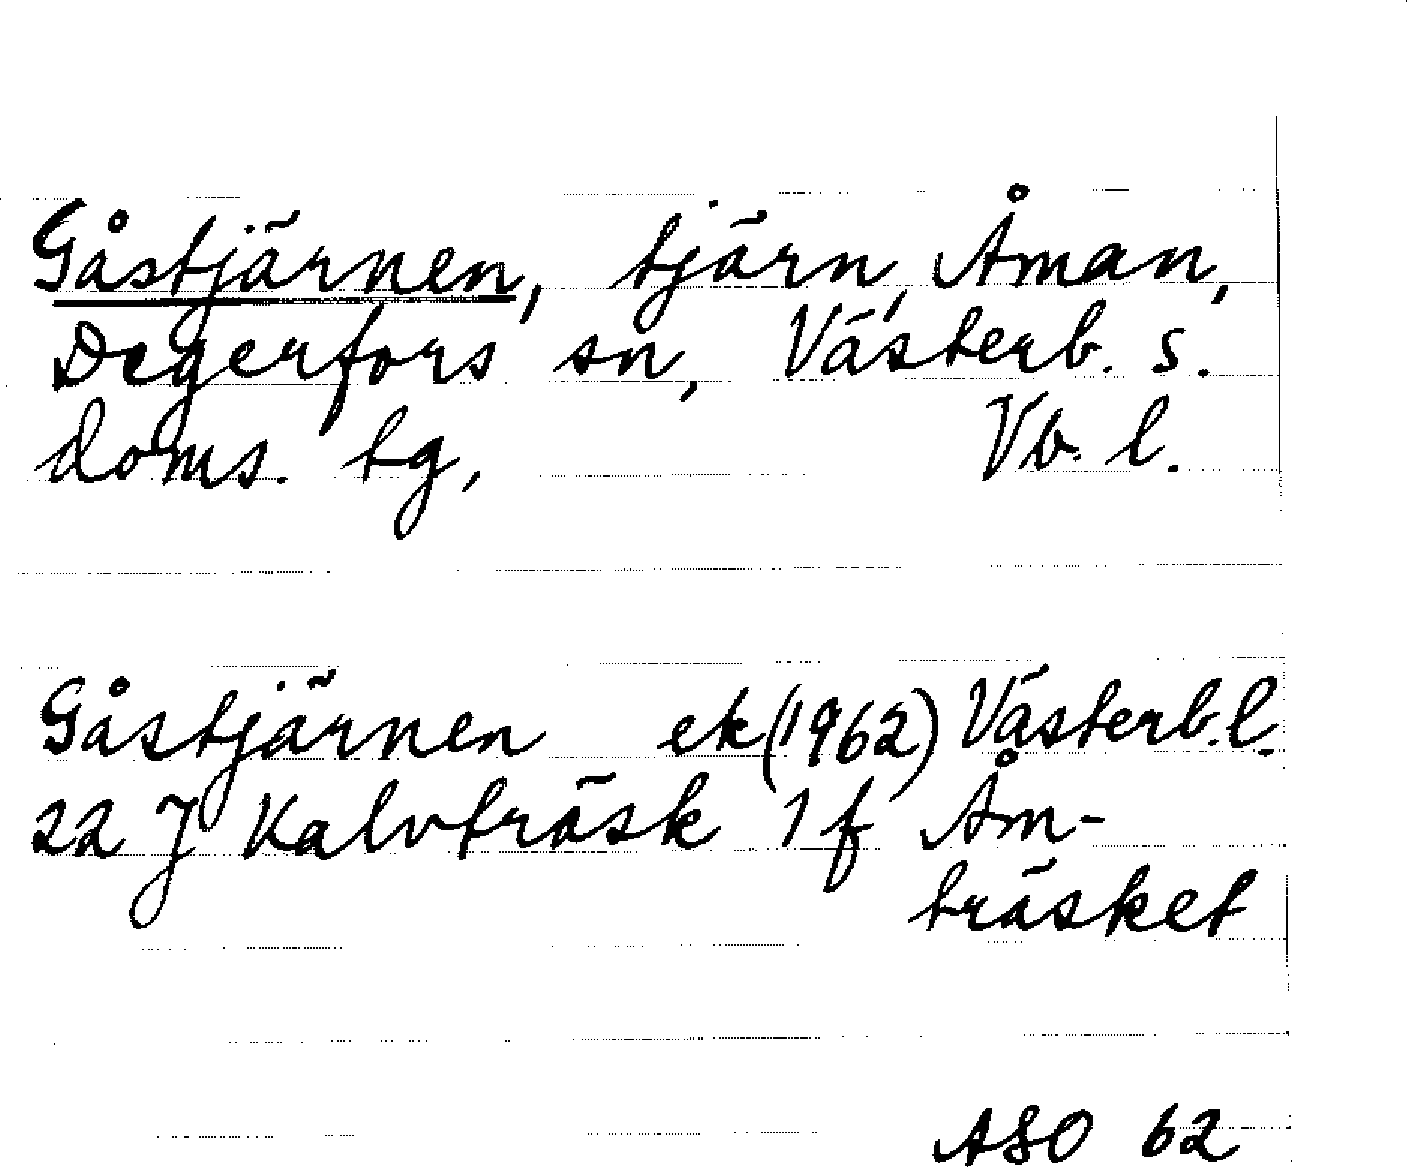 Gåstjärnen, tjärn, Åman,
Degerfors sn, Västerb. s.
doms. tg, Vb. l.
Gåstjärnen ek (1962) Västerb. l.
22 J Kalvträsk 1 f Åm-
träsket
ASO 62